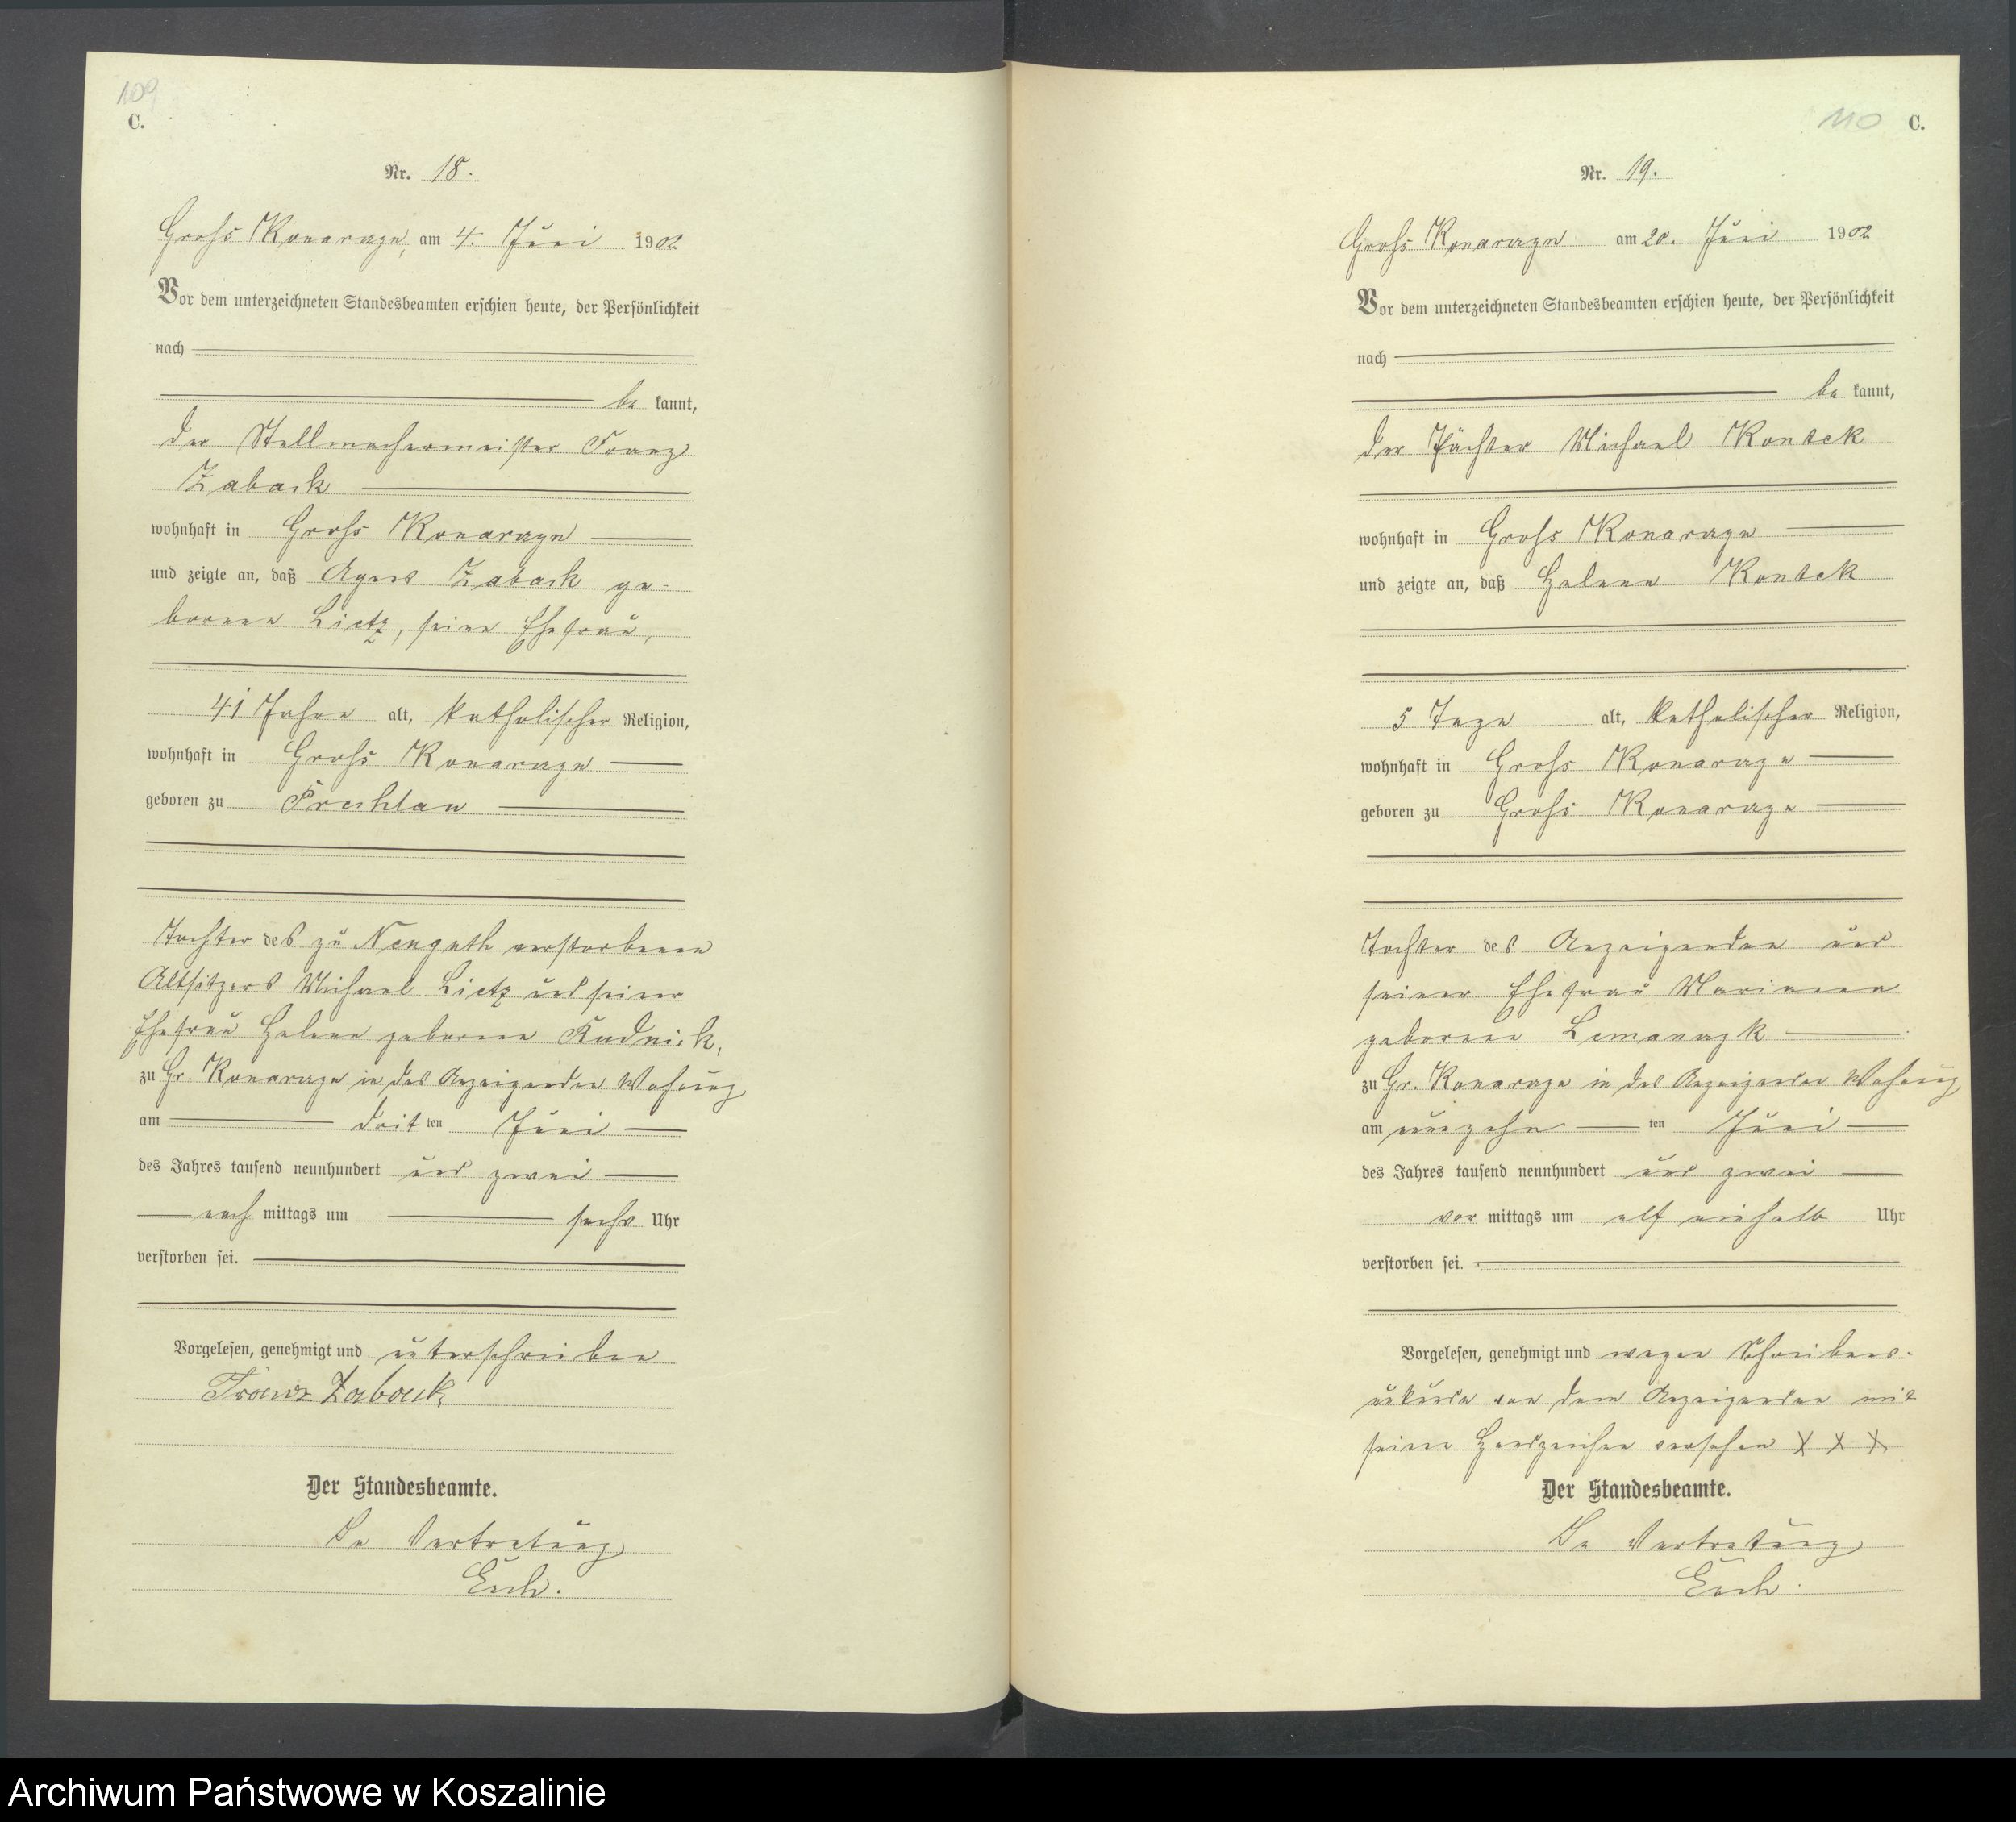 109
C.
Nr. 18.
Groß Konarzyn, am 4. Juni 1902
Vor dem unterzeichneten Standesbeamten erschien heute, der Persönlichkeit
nach
be kannt,
der Stellmachermeister Franz
Zaback
wohnhaft in Groß Konarzyn
und zeigte an, daß Agnes Zaback ge-
borene Lietz, seine Ehefrau,
41 Jahre alt, katholischer Religion,
wohnhaft in Groß Konarzyn
geboren zu Prechlau
Tochter des zu Neuguth verstorbenen
Altsitzers Michael Lietz und seiner
Ehefrau Helene geborene Rudnick,
zu Gr. Konarzyn in des Anzeigenden Wohnung
am drit ten Juni
des Jahres tausend neunhundert und zwei
nach mittags um sechs Uhr
verstorben sei.
Vorgelesen, genehmigt und unterschrieben
Franz Zaback
Der Standesbeamte.
In Vertretung
110 C.
Nr. 19.
Groß Konarzyn am 20. Juni 1902
Vor dem unterzeichneten Standesbeamten erschien heute, der Persönlichkeit
nach
be kannt,
der Pächter Michael Kontek
wohnhaft in Groß Konarzyn
und zeigte an, daß Helene Kontek
5 Tage alt, katholischer Religion,
wohnhaft in Groß Konarzyn
geboren zu Groß Konarzyn
Tochter des Anzeigenden und
seiner Ehefrau Marianna
geborene Lemanczk
zu Gr. Konarzyn in des Anzeigenden Wohnung
am neunzehn ten Juni
des Jahres tausend neunhundert und zwei
vor mittags um elf einhalb Uhr
verstorben sei.
Vorgelesen, genehmigt und wegen Schreibens-
unkunde von dem Anzeigenden mit
seinen Handzeichen versehen X X X
Der Standesbeamte.
In Vertretung
Archiwum Państwowe w Koszalinie